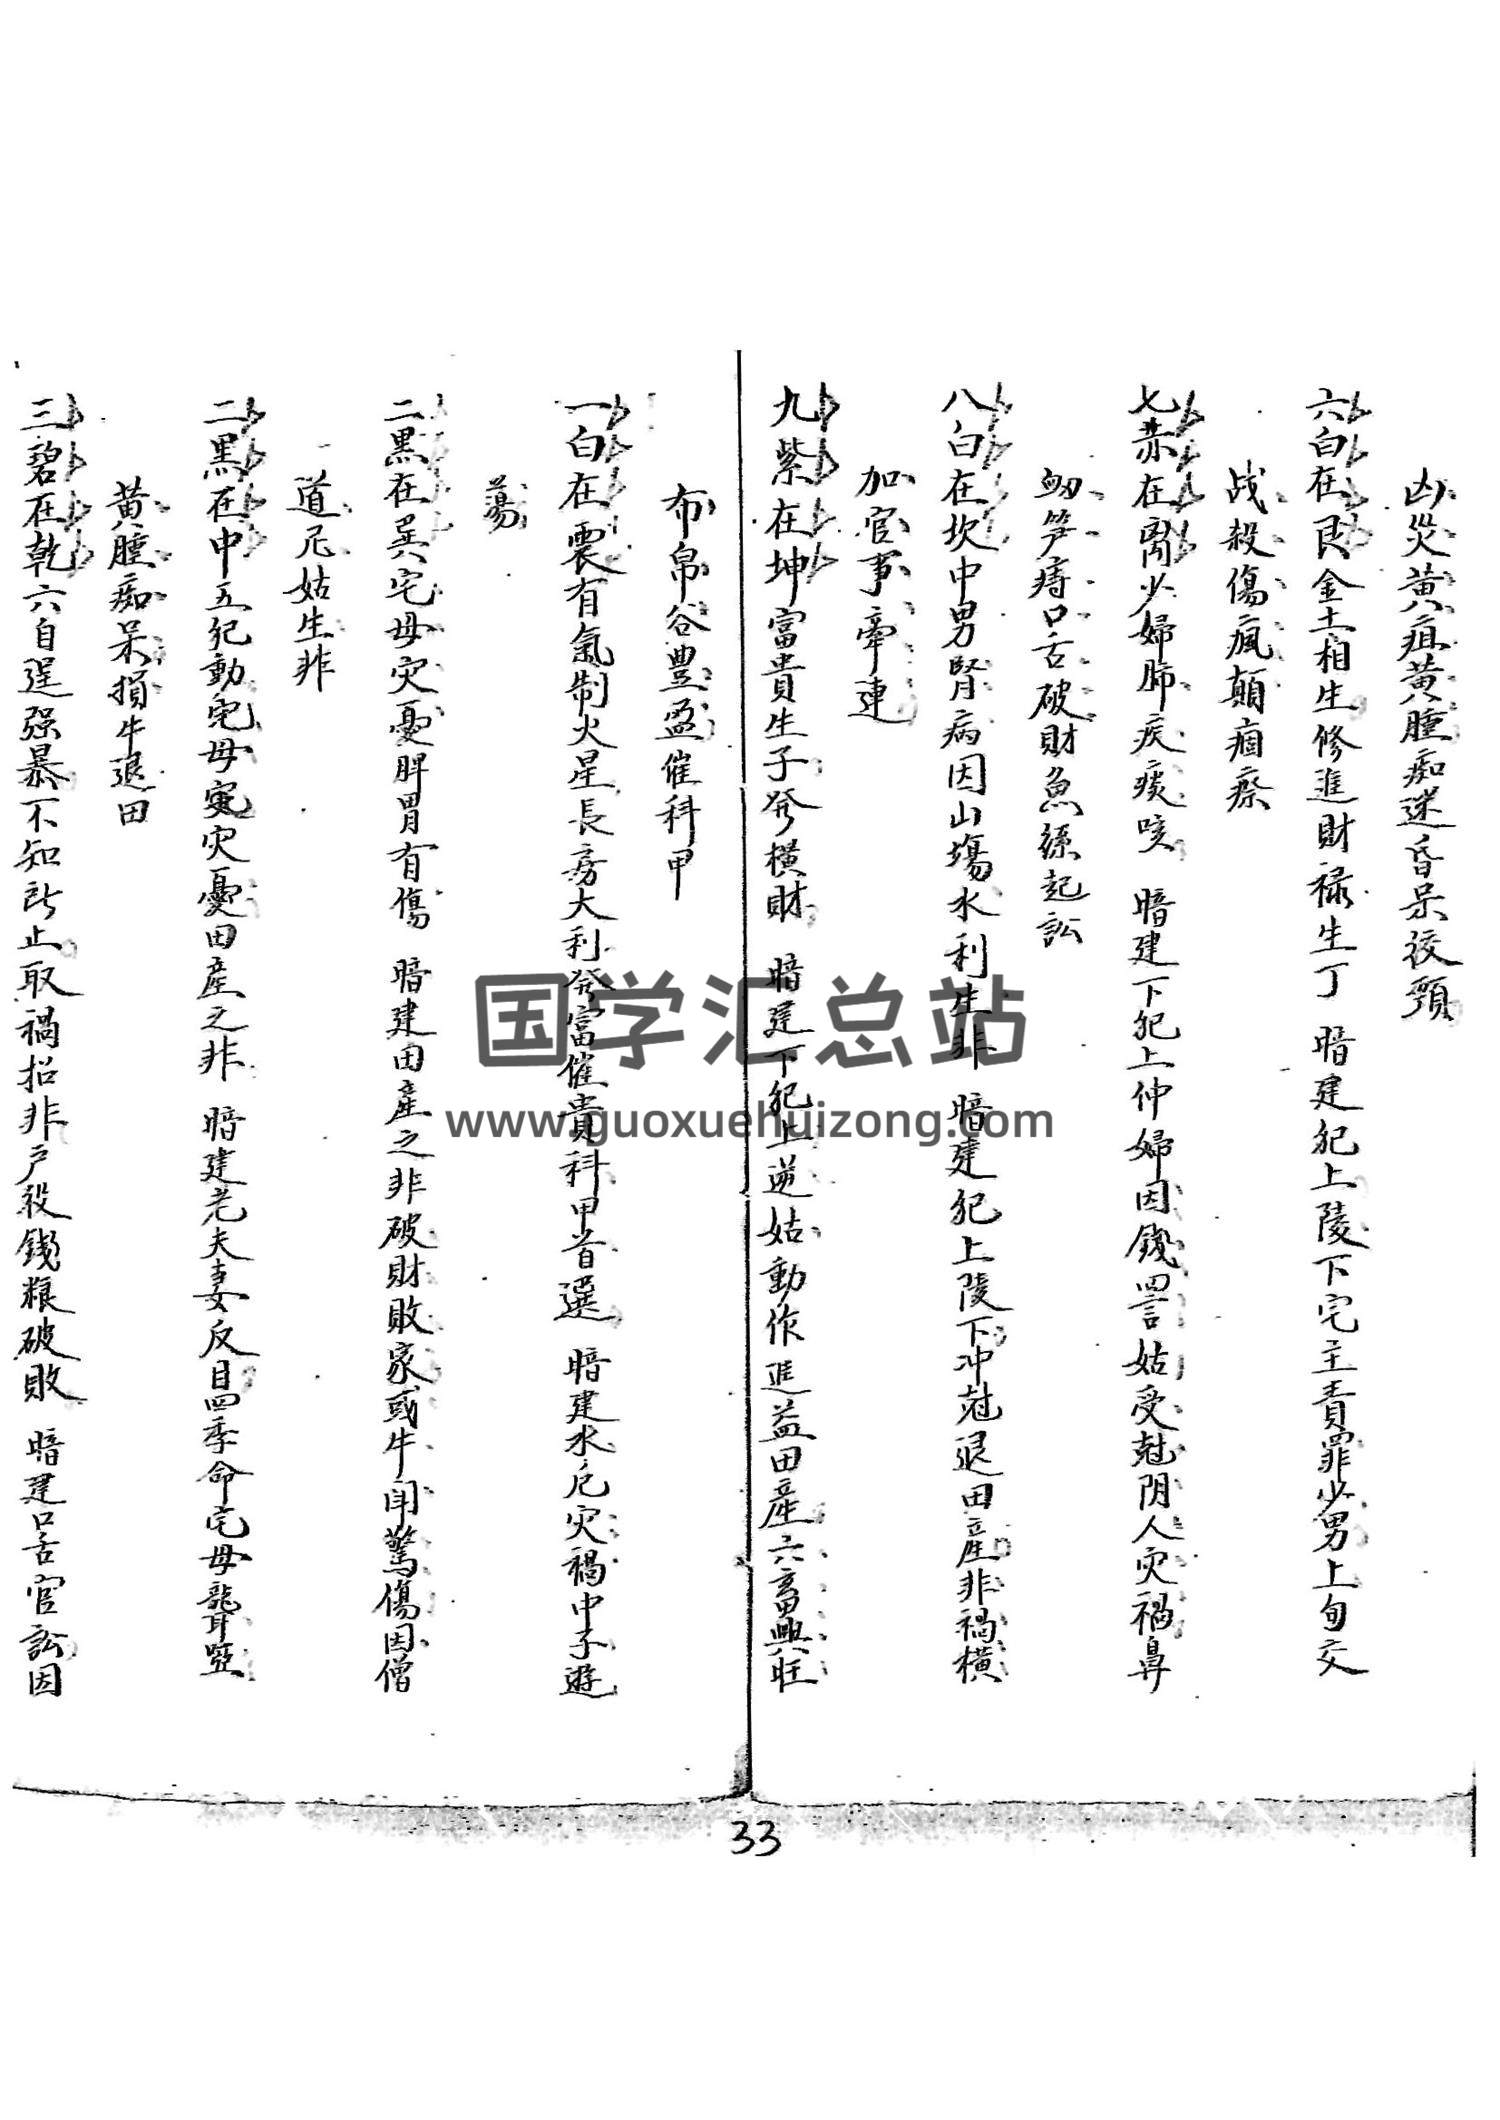 凶災黄疸黄腫痴迷昏呆
六白在艮金土相生修進財禄生丁 暗建犯上陵下宅主責罪少男上旬交
战殺傷瘋顛痼瘵
七赤在离少婦肺疾痰咳 暗建下犯上仲婦因錢詈姑受尅阴人灾禍鼻
痔口舌破財魚起訟
八白在坎中男腎病因山塲水利生非 暗建犯上陵下冲尅退田產非禍橫
加官事牽連
九紫在坤富貴生子発橫財 暗建下犯上逆姑動作進益田產六畜興旺
布帛谷豊盈催科甲
一白在震有氣制火星長房大利発富催貴科甲首選 暗建水厄灾禍中子遊
蕩
二黑在巽宅母灾憂脾胃有傷 暗建田產之非破財敗家或牛驚傷因僧
道尼姑生非
二黑在中五犯動宅母灾憂田產之非 暗建老夫妻反目四季命宅母聾啞
黄腫痴呆損牛退田
三碧在乾六自逞强暴不知所止取禍招非户役錢粮破敗 暗建口舌官訟因
国学汇总站
www.guoxuehuizong.com
33